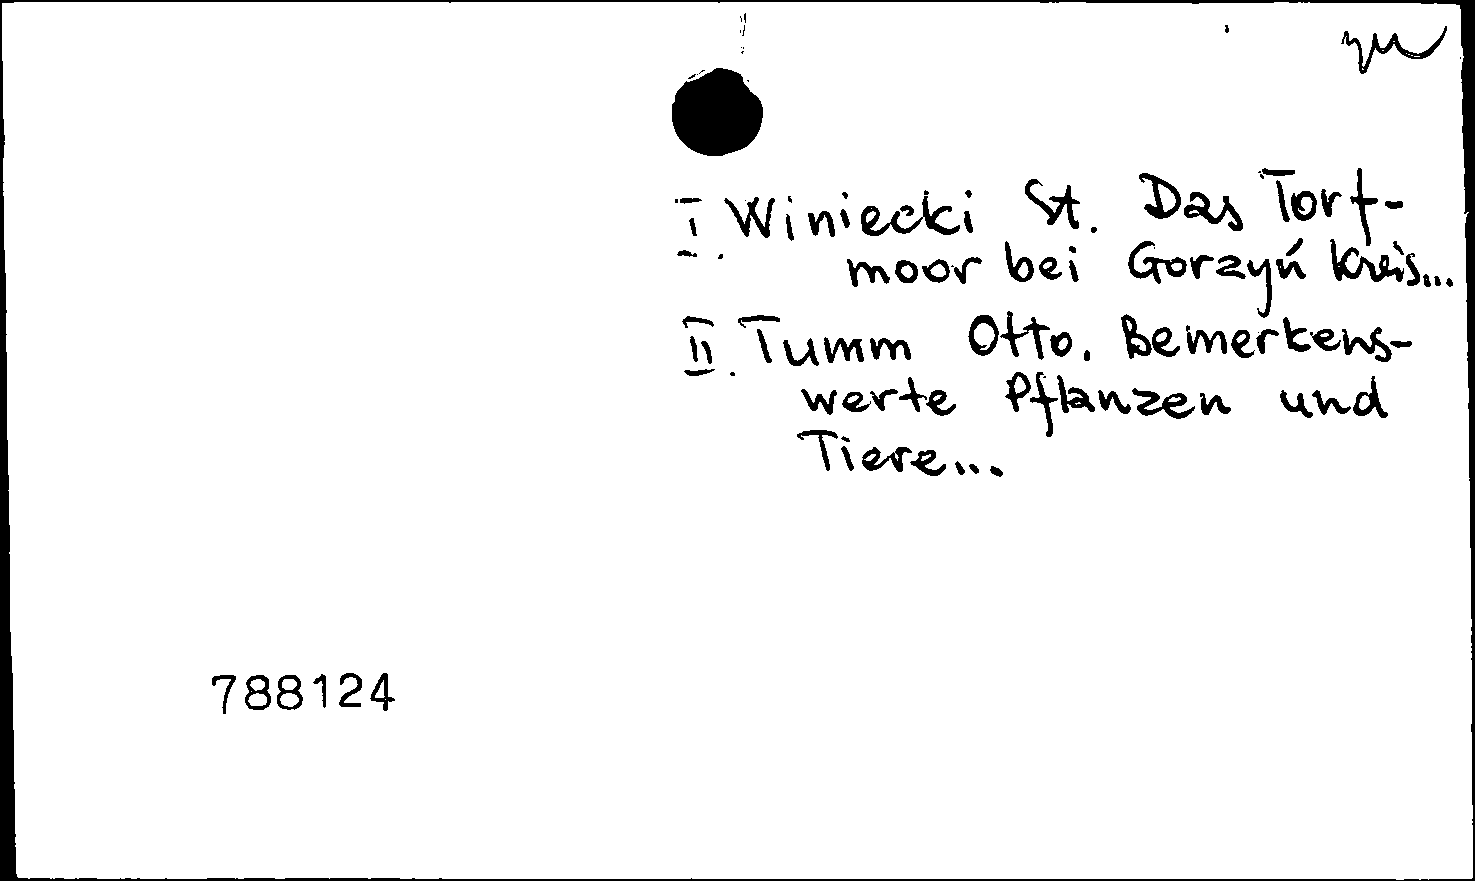 I. Winiecki St. Das Torf-
moor bei Gorzyń Kreis...
II. Tumm Otto. Bemerkens-
werte Pflanzen und
Tiere...
788124